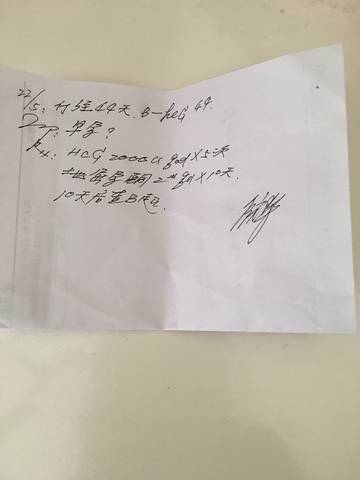 22/5: 停经44天. B-HCG 49.
Dx: 早孕?
Rx: HCG 2000u qod×5次
地屈孕酮 2# qd×10天.
10天后查B超.